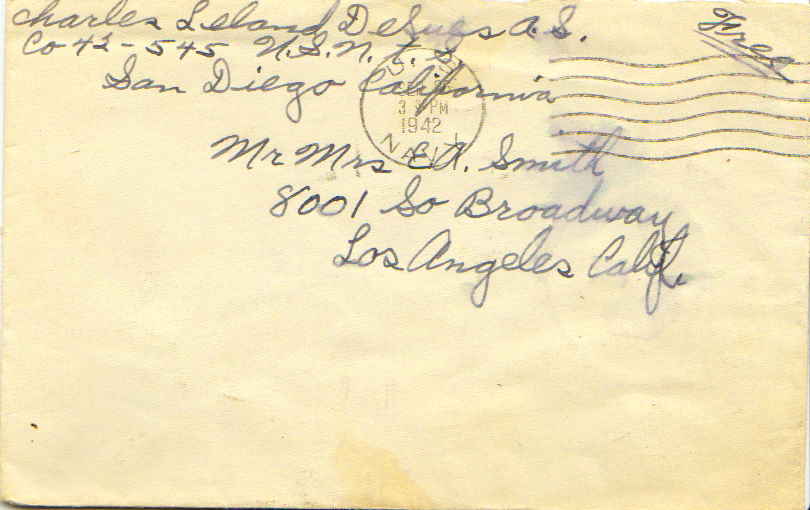 Charles Leland DeSues A.S.
Co 42-545 U.S.N.T.S.
San Diego California
Free
U.S.
3 PM
1942
NAVY
Mr Mrs E.A. Smith
8001 So Broadway
Los Angeles Calif.